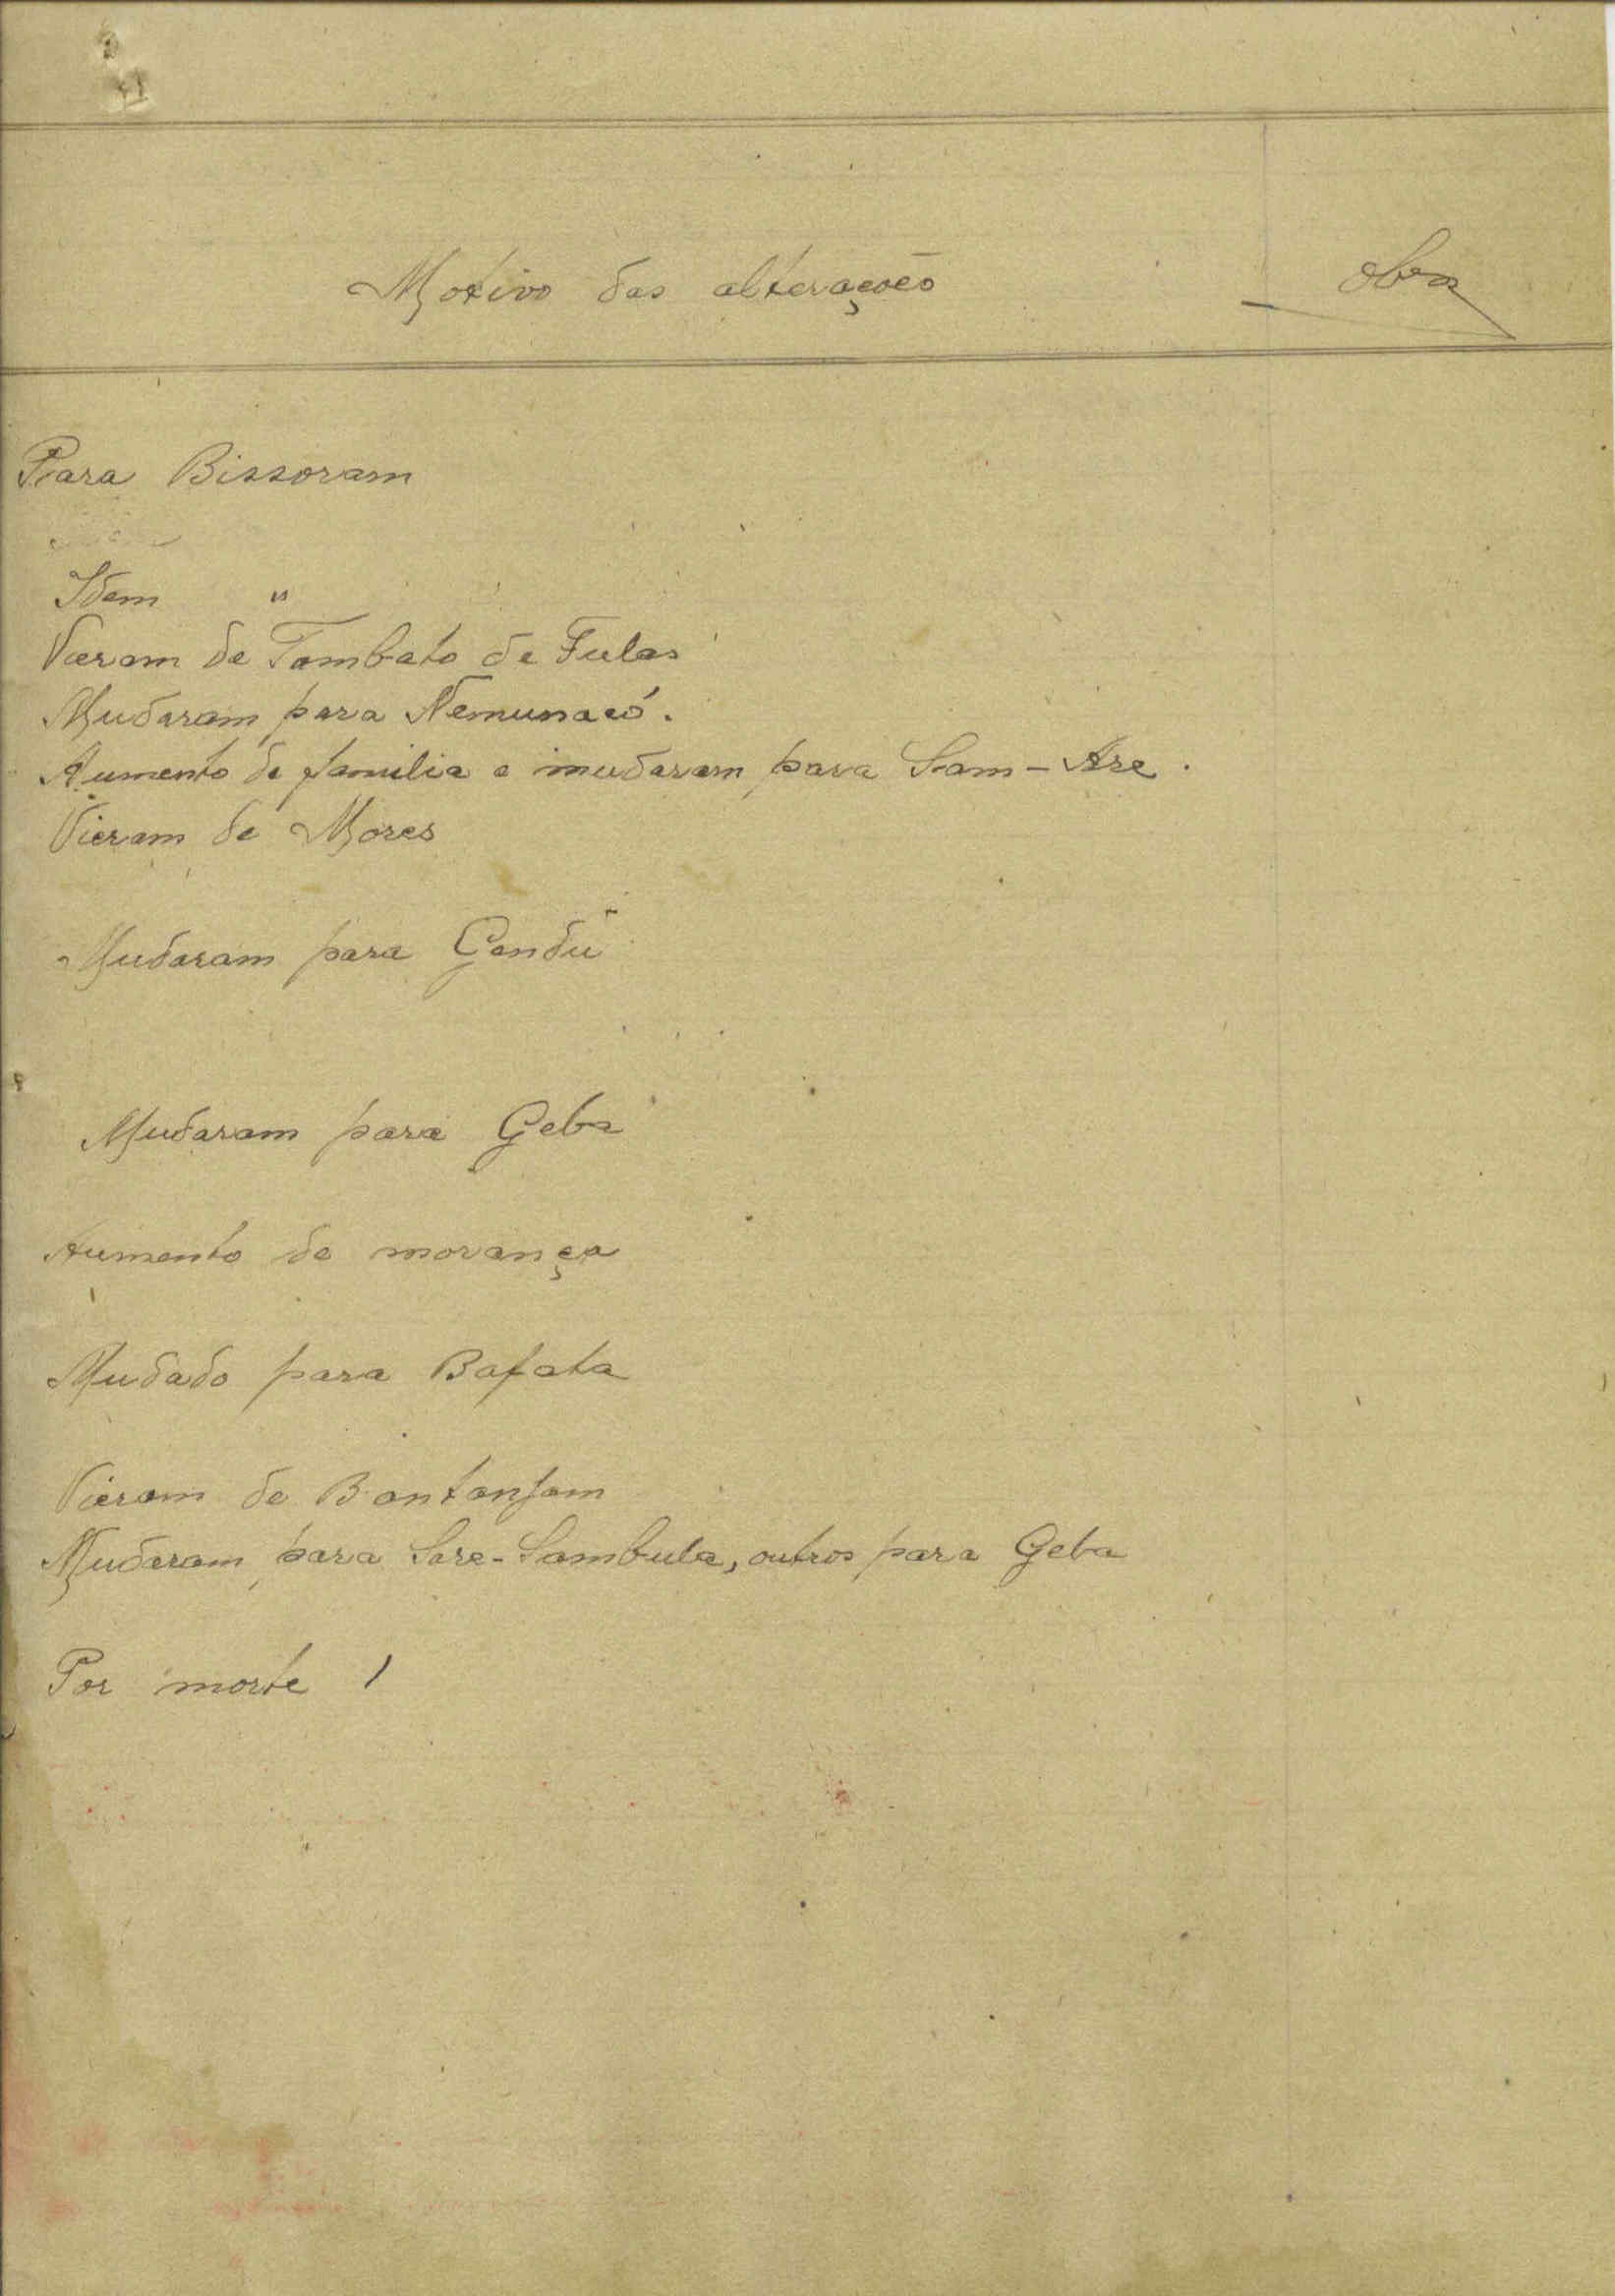 Motivo das alterações
Obs
Para Bissoram
Idem "
Vieram de Tambato de Fulas
Mudaram para Nemunacó.
Aumento de familia e mudaram para Sam-Are.
Vieram de Mores
Mudaram para Gendu
Mudaram para Geba
Aumento de morança
Mudado para Bafata
Vieram de Bantanjam
Mudaram para Sare-Sambula, outros para Geba
Por morte 1